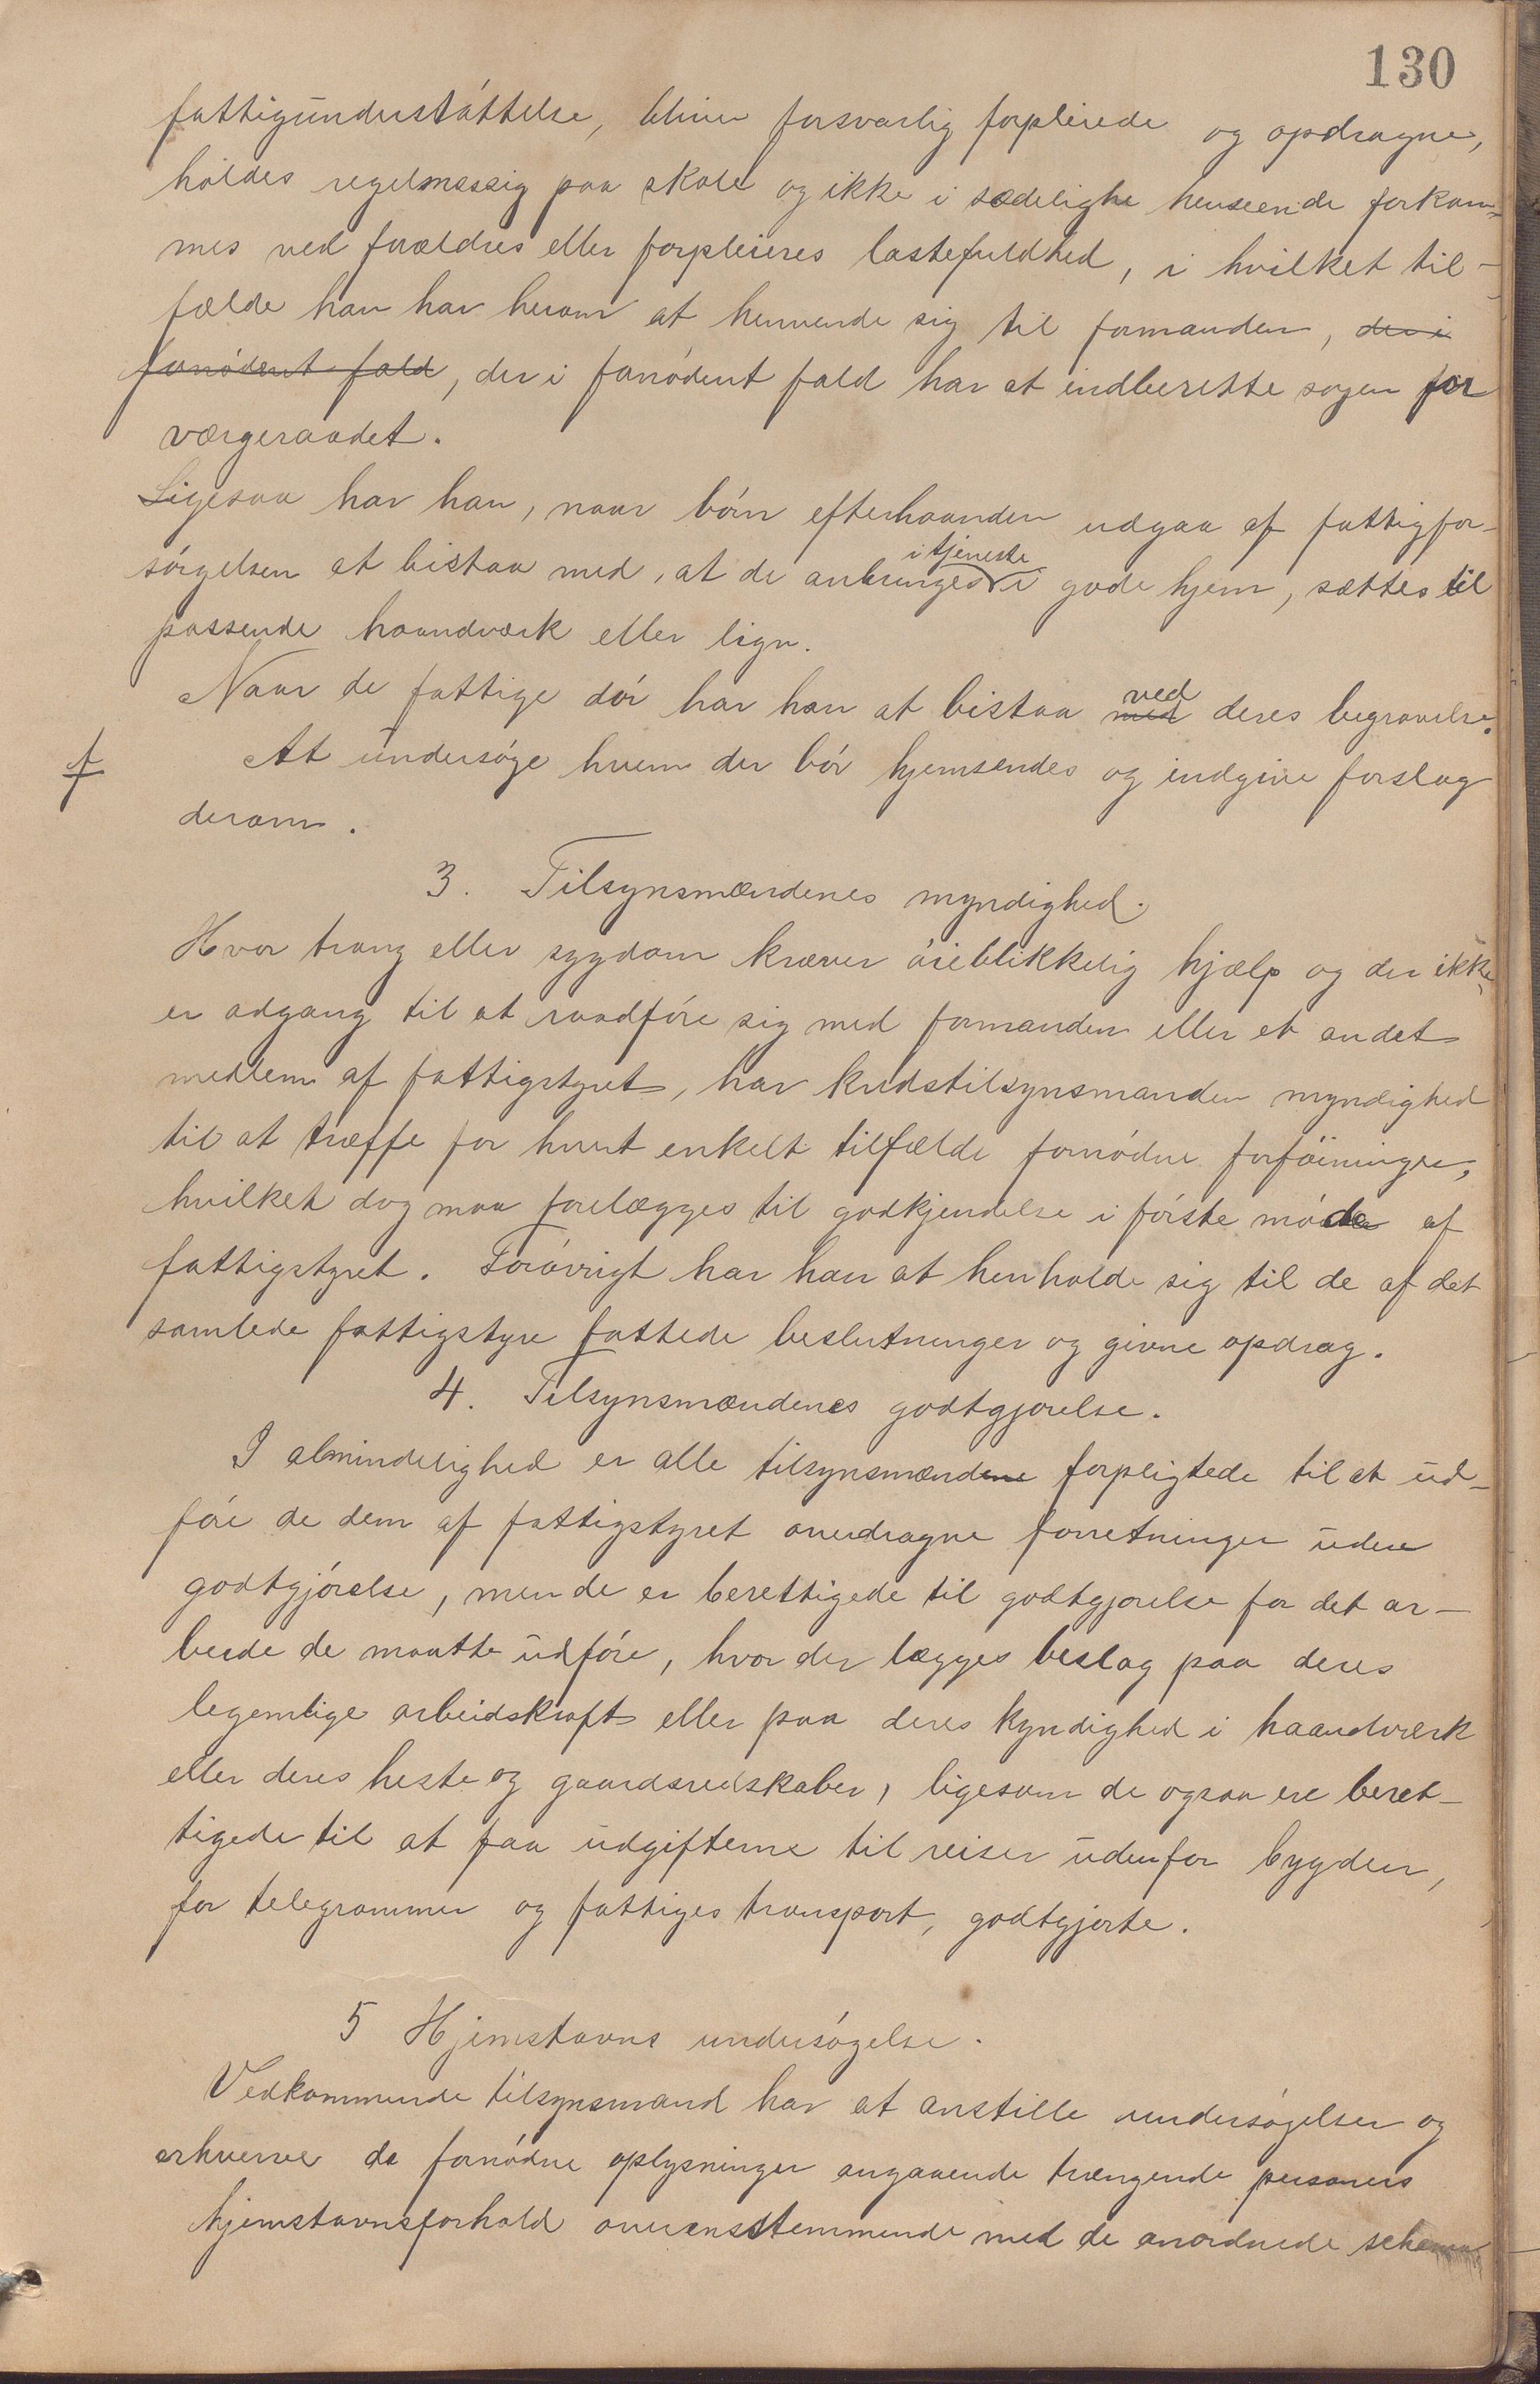 130
fattigunderstøttelse, bliver forsvarlig forpleiede og opdragne,
holdes regelmæssig paa skole og ikke i sædelighe henseende forkom-
mes ved forældres eller forpleieres lastefuldhed, i hvilket til-
fælde han har herom at henvende sig til formanden, der i
fornødent fald, der i fornødent fald har at indberette sagen for
værgeraadet.
Ligesaa har han, naar børn efterhaanden udgaa af fattigfor-
sørgelsen at bistaa med, at de anbringes i tjeneste i gode hjem, sættes til
passende haandværk eller lign.
Naar de fattige dør har han at bistaa med ved deres begravelse.
f At undersøge hvem der bør hjemsendes og indgive forslag
derom.
3. Tilsynsmændenes myndighed.
Hvor trang eller sygdom kræver øieblikkelig hjælp og der ikke
er adgang til at raadføre sig med formanden eller et andet
medlem af fattigstyret, har kredstilsynsmanden myndighed
til at træffe for hvert enkelt tilfælde fornødne forføininger,
hvilket dog maa forelægges til godkjendelse i første møde af
fattigstyret. Forøvrigt har han at henholde sig til de af det
samlede fattigstyre fattede beslutninger og givne opdrag.
4. Tilsynsmændenes godtgjørelse.
I almindelighed er alle tilsynsmændene forpligtede til at ud-
føre de dem af fattigstyret overdragne forretninger uden
godtgjørelse, men de er berettigede til godtgjørelse for det ar-
beide de maatte udføre, hvor der lægges beslag paa deres
legemlige arbeidskraft eller paa deres kyndighed i haandværk
eller deres heste og gaardsredskaber, ligesom de ogsaa ere beret-
tigede til at faa udgifterne til reiser udenfor bygden,
for telegrammer og fattiges transport, godtgjorte.
5 Hjemstavns undersøgelse.
Vedkommende tilsynsmand har at anstille undersøgelser og
erhverve de fornødne oplysninger angaaende trængende personers
hjemstavnsforhold overensstemmende med de anordnede schema